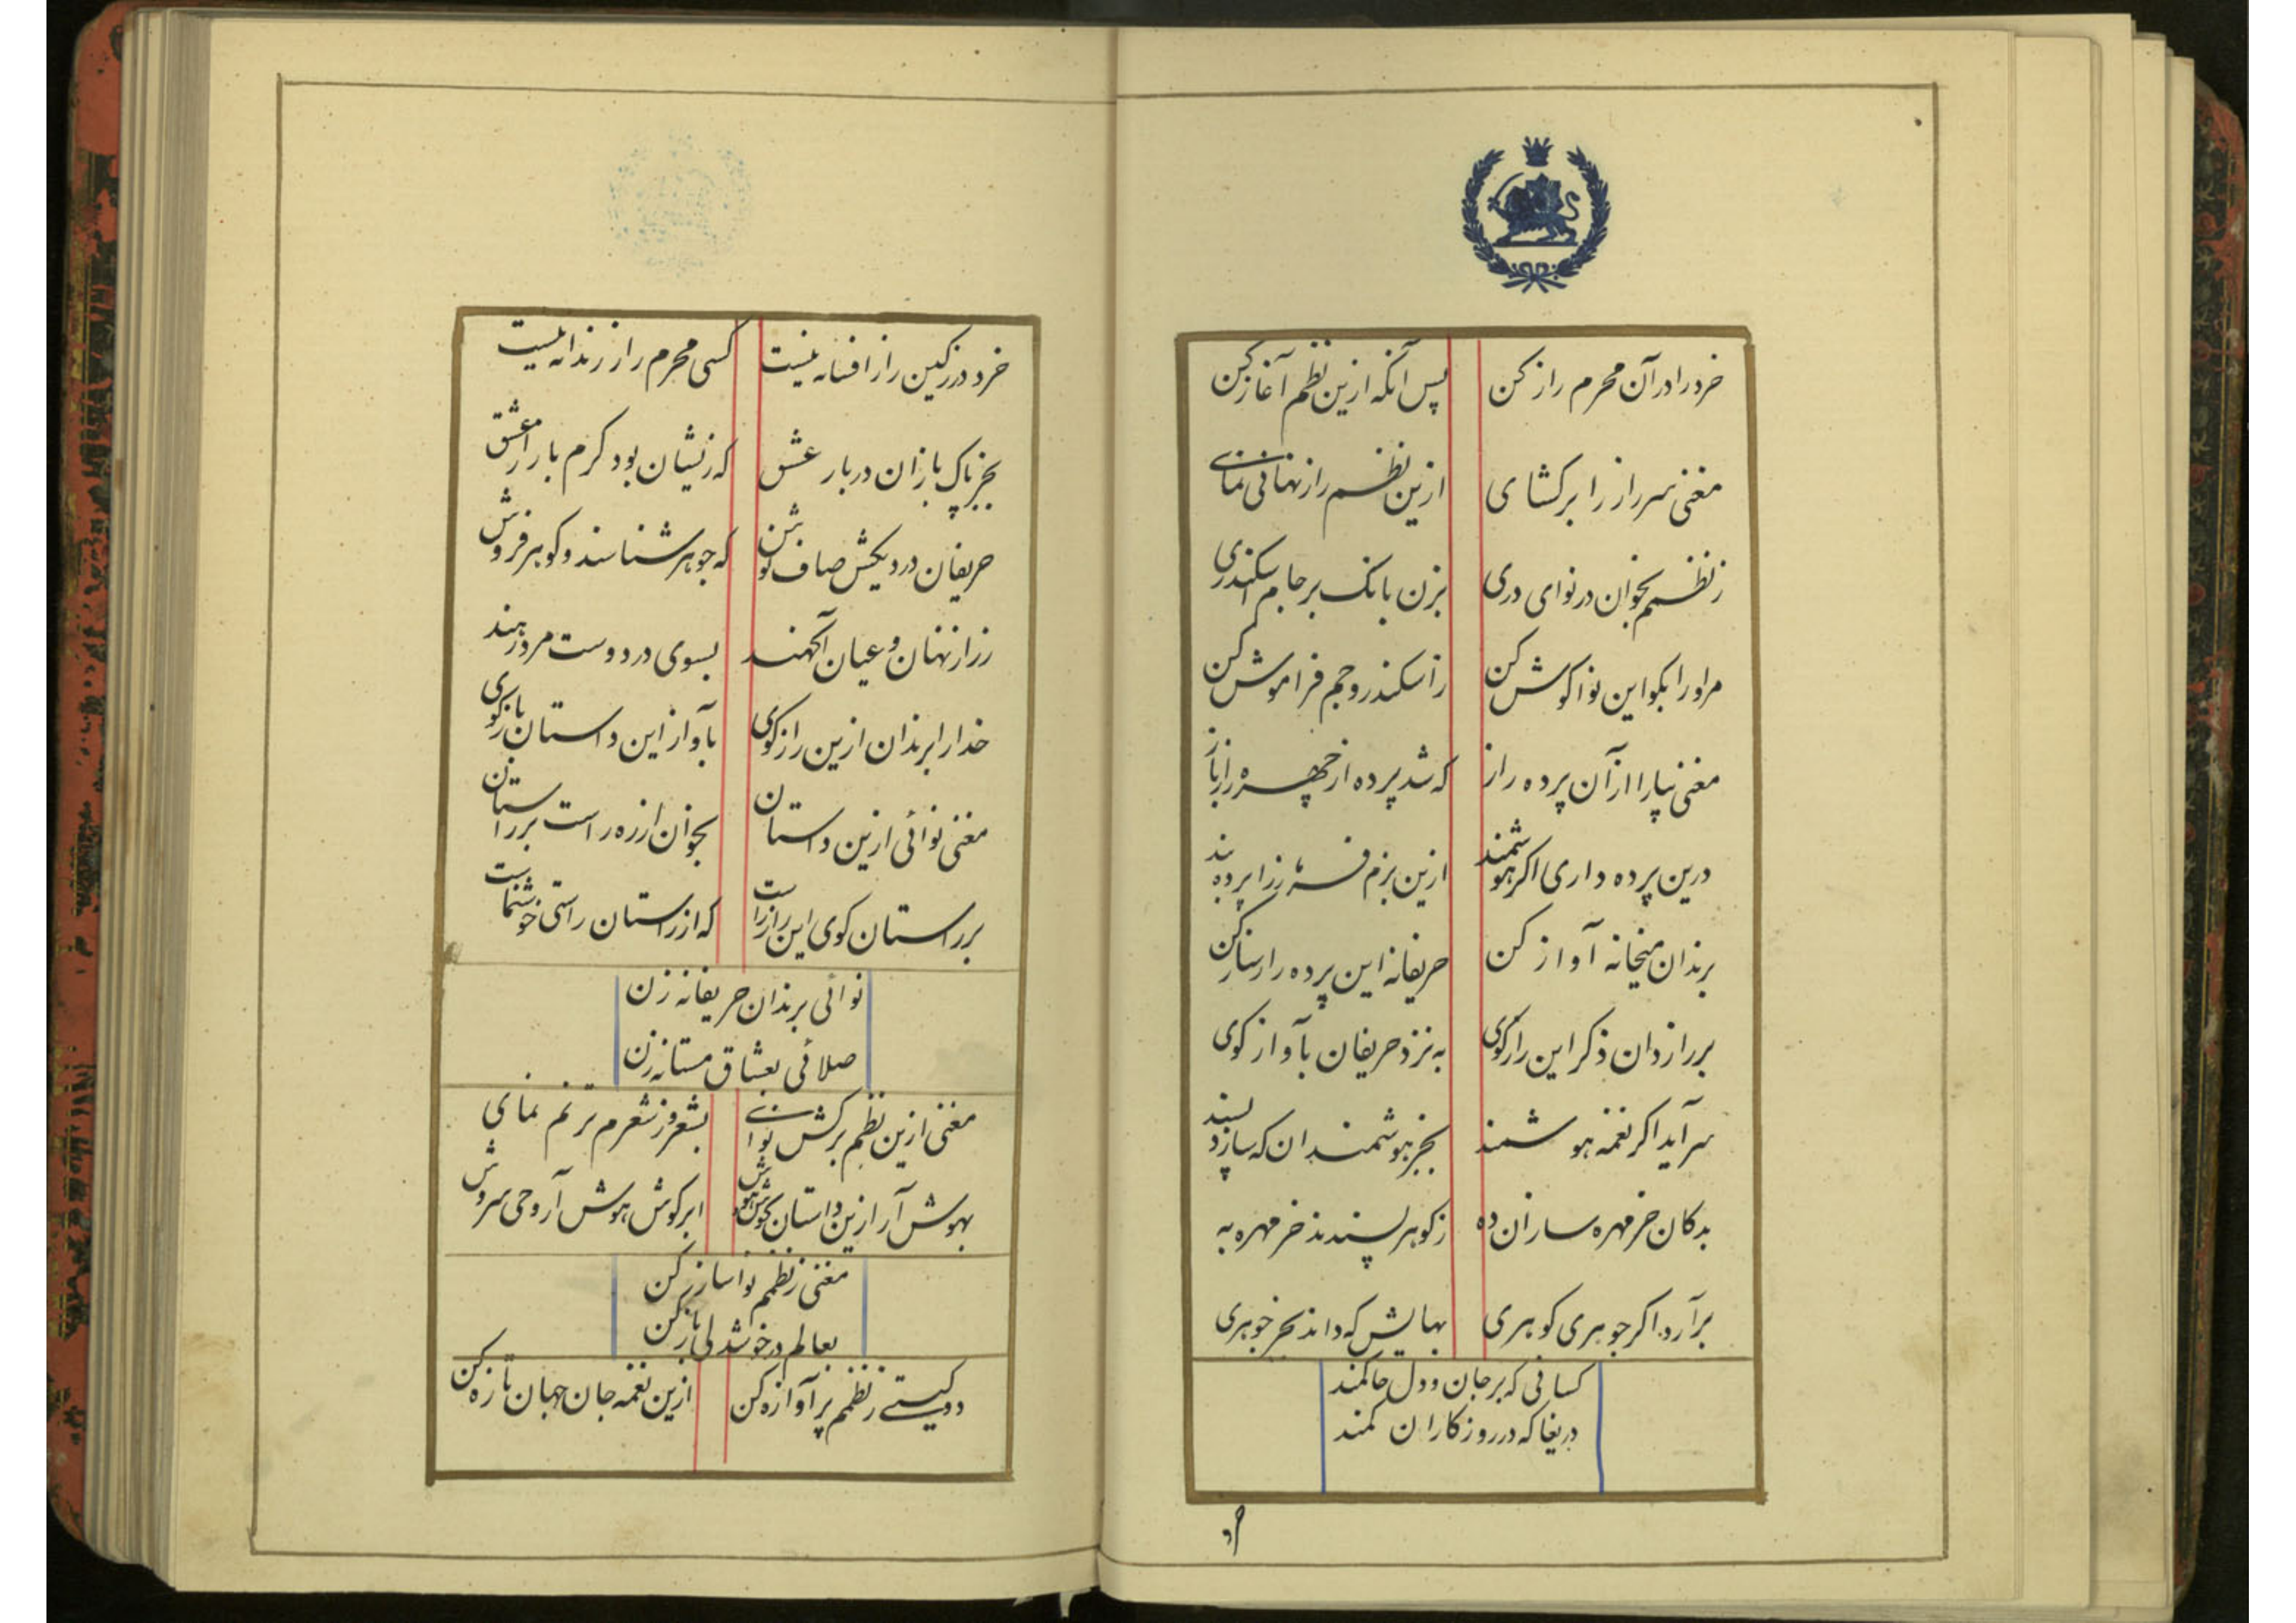 خرد را در آن محرم راز کن پس آنکه ازین نظم آغاز کن
مغنی سر راز را برکشای ازین نظم راز نهانی نمای
ز نظمم بخوان در نوای دری بزن بانک بر جام اسکندری
مر او را بکو این نوا کوش کن ز اسکندر و جم فراموش کن
مغنی بیارا از آن پرده راز که شد پرده از چهره راز باز
درین پرده داری اکر هوشمند ازین بزم فرزانه را پرده بند
برندان میخانه آواز کن حریفانه این پرده را ساز کن
بر رازدان ذکر این راز کوی به نزد حریفان بآواز کوی
سرآید اکر نغمه هوشمند بجز هوشمندان که سازد پسند
بدکان خرمهره ساران ده ز کوهر پسندند خرمهره به
برآرد اکر جوهری کوهری بهایش که داند بجز جوهری
کسانی که بر جان و دل حاکمند
دریغا که در روزکاران کمند
خرد
خرد در زکین راز افسانه نیست کسی محرم راز رندانه نیست
بجز پاک بازان دربار عشق که زیشان بود کرم بازار عشق
حریفان دردیکش صاف نوش که جوهر شناسند و کوهر فروش
ز راز نهان و عیان آکهند بسوی در دوست مرد رهند
خدا را برندان ازین راز کوی بآواز این داستان باز کوی
مغنی نوائی ازین داستان بخوان از ره راست بر راستان
بر راستان کوی این راز راست که از راستان راستی خوشنماست
نوائی برندان حریفانه زن
صلائی بعشاق مستانه زن
مغنی ازین نظم برکش نوای بشعر و ز شعرم ترنم نمای
بهوش آر ازین داستان کوش هوش ابر کوش هوش آر وحی سروش
مغنی ز نظمم نوا ساز کن
بعالم در خوشدلی باز کن
دو کیتی ز نظمم پرآوازه کن ازین نغمه جان جهان تازه کن